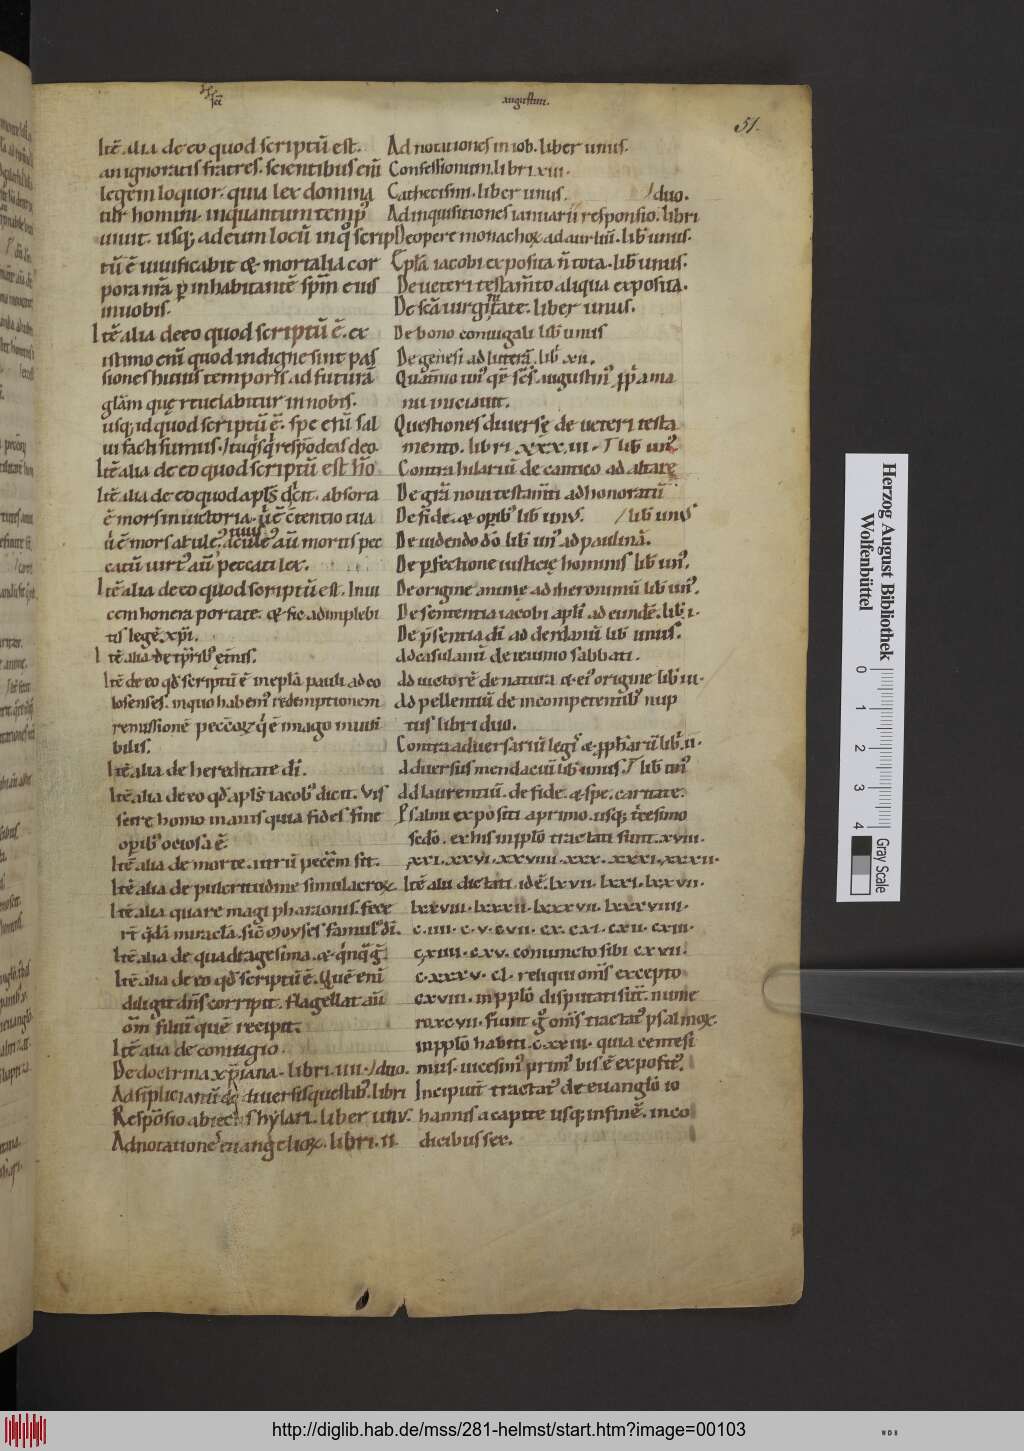 scī
augustini.
51.
Itē alia de eo quod scriptū est.
an ignoratis fratres. scientibus enī
legem loquor. quia lex domina
tur homini. inquantum temp̄
uiuit. usq; ad eum locū in q̊ scrip
tū ē uiuificabit & mortalia cor
pora nr̄a p̱ inhabitantē spm̄ eius
in uobis.
Itē alia de eo quod scriptū ē. ex
istimo enī quod indigne sint pas
siones huius temporis ad futurā
glām que reuelabitur in nobis.
usq; id quod scriptū ē. spe enī sal
ui facti sumus.
Itē alia de eo quod scriptū est
Itē alia de eo quod apls̄ dicit. absorta
ē mors in uictoria. ē c̄tentio tua
peccati lex.
Itē alia de eo quod scriptū est. Inui
cem honera portate. & sic adimplebi
tis legē xp̄i.
Itē alia de tp̄rib; etnis.
Itē de eo qd̄ scriptū ē in eplā pauli ad co
losenses. in quo habem; redemptionem
remissionē peccōꝝ q̇ ē imago inuisi
bilis.
Itē alia de hereditate dī.
Itē alia de eo qd̄ apls̄ iacob; dicit. Vis
scire homo inanis quia fides sine
opib; ociosa ē.
Itē alia de morte. utrū peccm̄ sit.
Itē alia de pulcritudine simulacroꝝ
Itē alia quare magi pharaonis fece
rt̄ q̇dā miraclā. sic̄ moyses famul; dī.
Itē alia de quadragesima. & q̇nq̈g̈.
Itē alia de eo qd̄ scriptū ē. Quē enī
diligit dn̄s corripit. flagellat aū
om̄ filiū quē recipit.
Itē alia de coniugio.
De doctrina xp̄iana. libri. IIII. / duo.
Ad simplicianū de diuersis questib;. libri
Respōsio hylari. liber unv.
Adnotatione euangelioꝝ. libri. II.
Adnotationes in iob. liber unus.
Confessionum. libri. XIII.
Cathecismi. liber unus. / duo.
Ad inquisitiones ianuarii responsio. libri
De opere monachoꝝ ad aurliū. lib̄ unus.
Eplā iacobi exposita n̄ tota. lib̄ unus.
De ueteri testam̄to aliqua exposita.
De scā uirginitate. liber unus.
De bono coniugali lib̄ unus
De genesi ad litterā. lib̄. XII.
ama
nu
Questiones diuersę de ueteri testa
mento. libri. lib̄ un;.
Contra hilariū de cantico ad altare
De grā noui testam̄ti ad honoratū
De fide. & opib; lib̄ unv. / lib̄ unus
De uidendo dō. lib̄ un; ad paulinā.
De pfectione iusticię hominis lib̄ un;.
De origine animę ad iheronimū lib̄ un;.
De sententia iacobi aplī ad eundē. lib̄. I.
De p̄sentia dī ad derdanū lib̄ unus.
Ad casulanū de ieiunio sabbati.
Ad uictorē de natura & origine lib̄ III.
Ad pellentiū de incompetentib; nup
tiis libri duo.
Contra aduersariū legi; & pphaꝝ lib̄. II.
Aduersus mendaciū lib̄ unus. lib̄ un;
Ad laurentiū. de fide. & spe. caritate.
Psalmi expositi a primo. usq; t̄cesimo
scdō. ex his in pplō tractati sunt. XVIII.
XXI. XXVI. XXVIIII. XXX. XXXI. XXXII.
Itē alii dictati. id ē. LXVII. LXXI. LXXVII.
LXXVIII. LXXXII. LXXXVII. LXXXVIIII.
C. IIII. C. V. CVII. CX. CXI. CXII. CXIII.
CXIIII. CXV. coniuncto sibi CXVII.
C. XXXV. CL. reliqui om̄s excepto
CXVIII. in pplō disputati st̄. nume
ro. XCVII. fiunt g̊ om̄s tractat; psalmoꝝ.
in pplō habiti. C. XXIII. quia centesi
mus. uicesim; prim; bis ē exposit;.
Incipiun̄t tractat; de euanglō io
hannis a capite usq; in finē. in co
dicibus sex.
Herzog August Bibliothek
Wolfenbüttel
0 1 2 3 4
Gray Scale
http://diglib.hab.de/mss/281-helmst/start.htm?image=00103
WDB